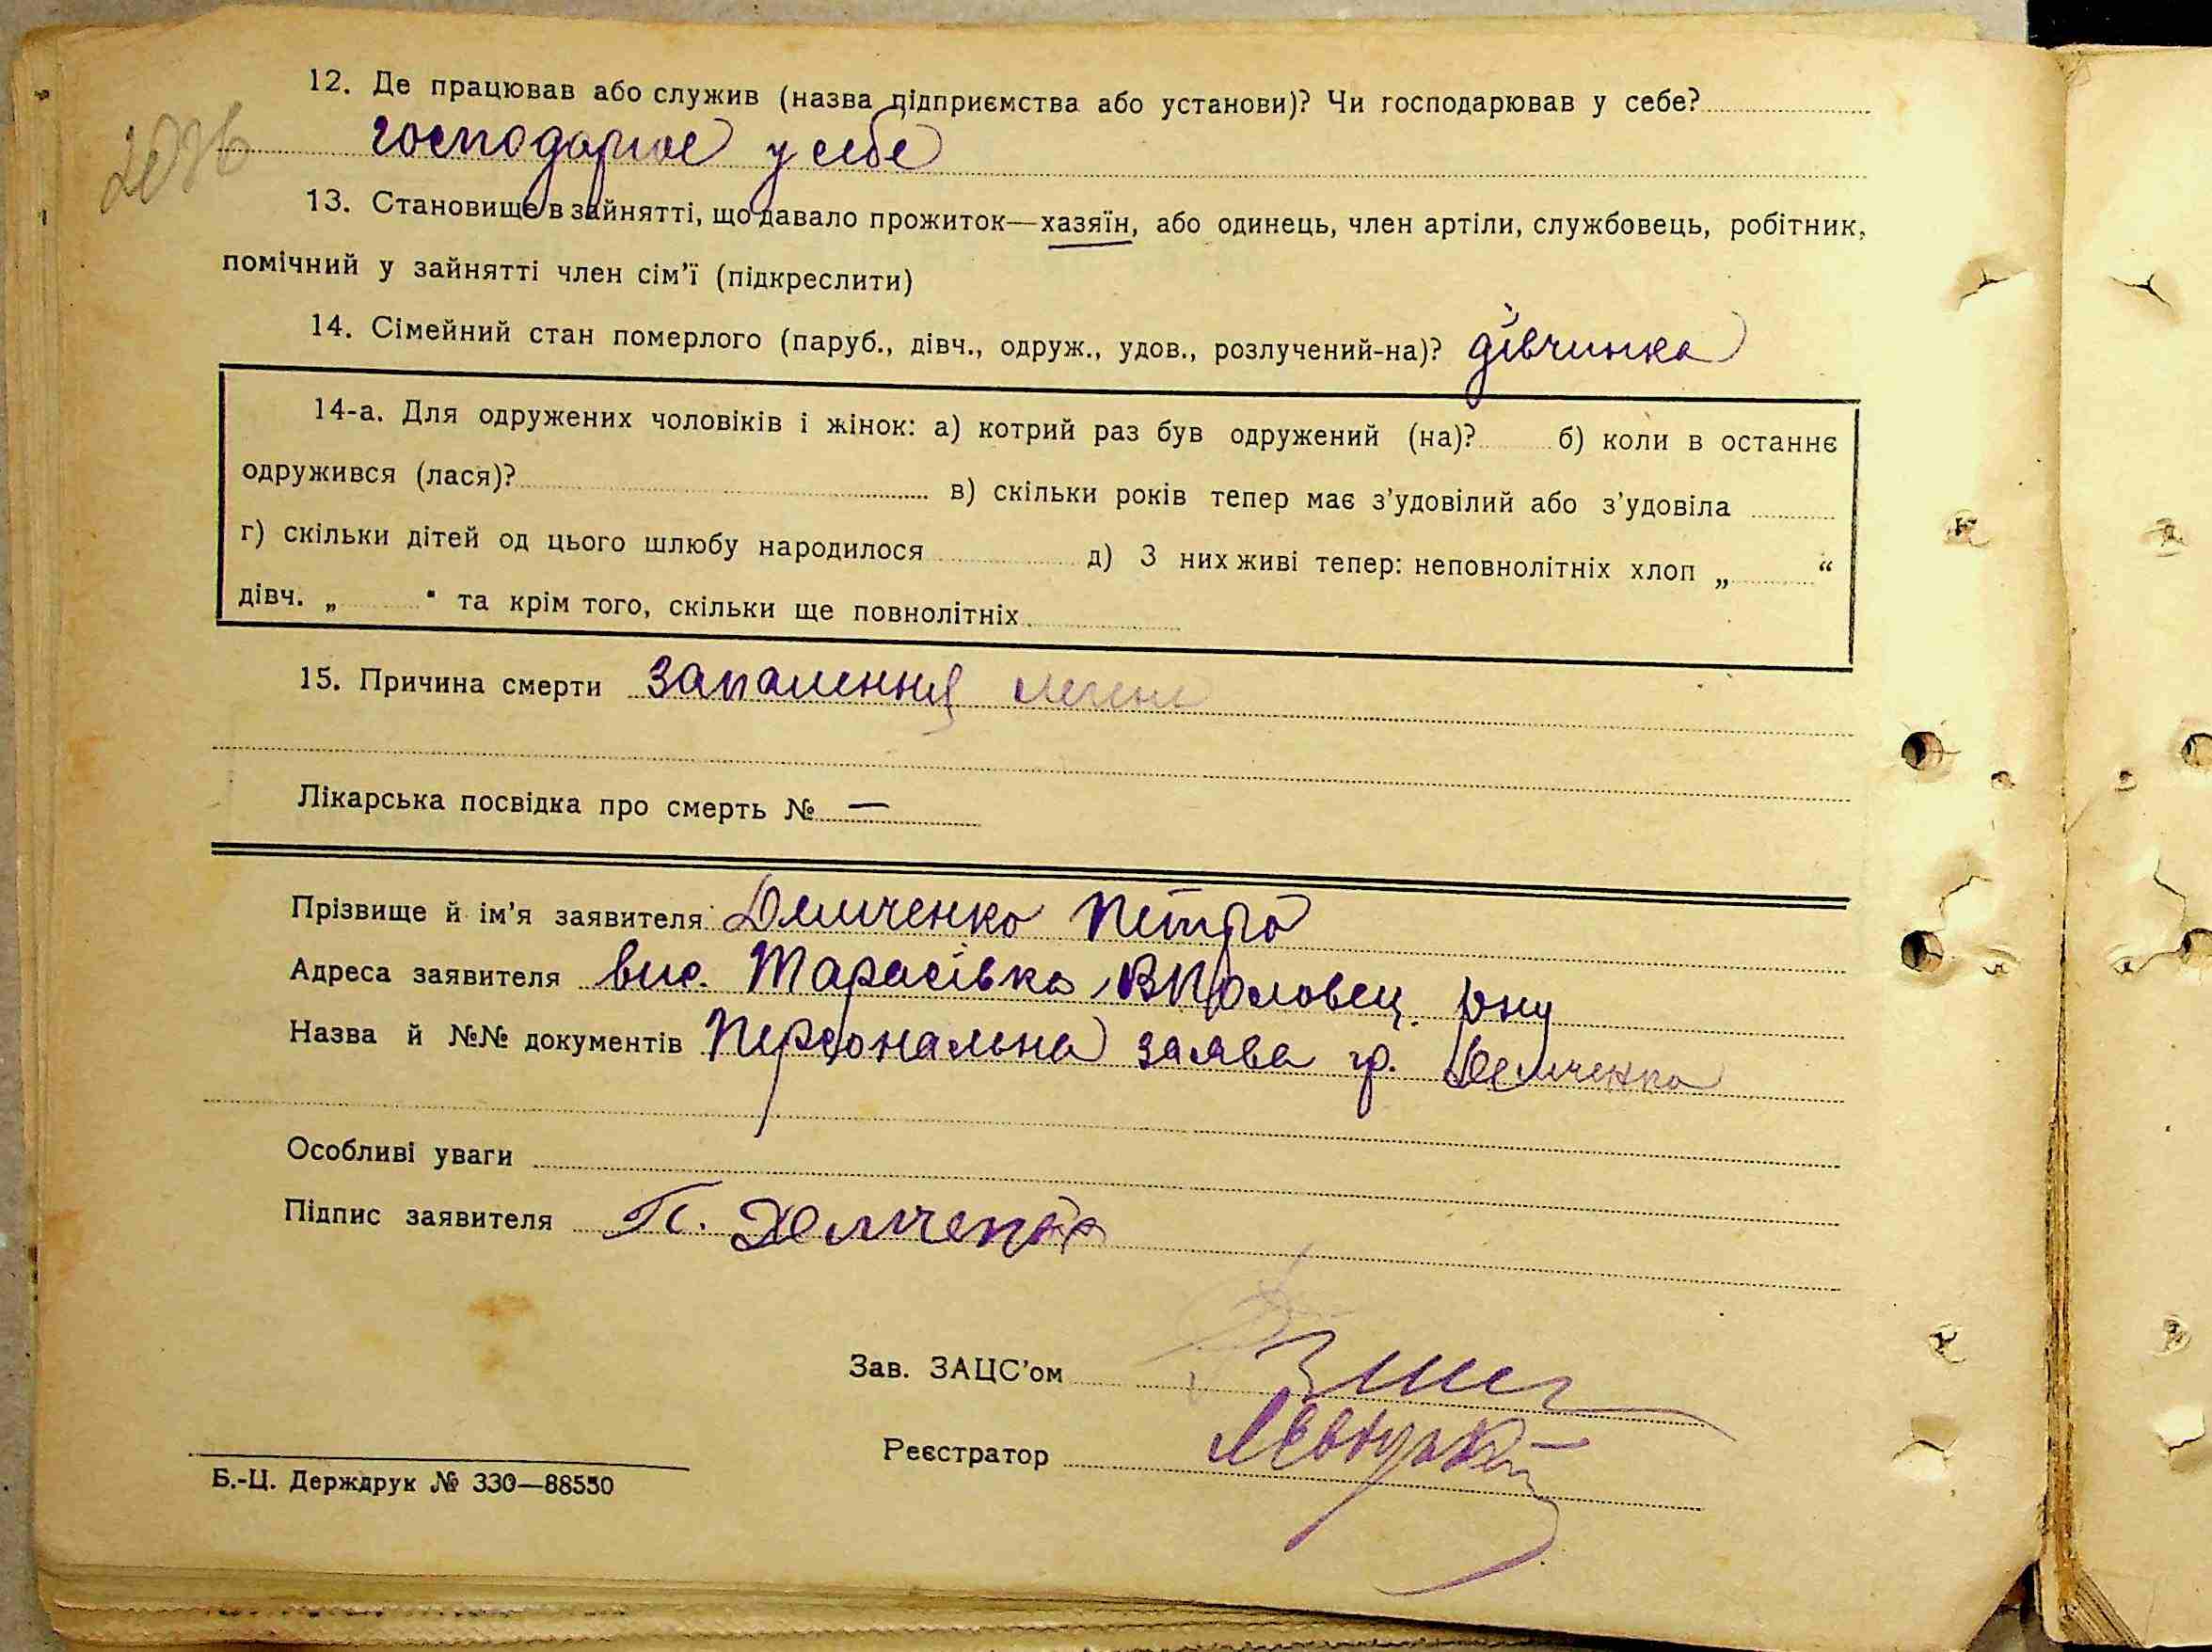 12. Де працював або служив (назва підприємства або установи)? Чи господарював у себе?
господарює у себе
13. Становище в зайнятті, що давало прожиток—хазяїн, або одинець, член артіли, службовець, робітник,
помічний у зайнятті член сім'ї (підкреслити)
14. Сімейний стан померлого (паруб., дівч., одруж., удов., розлучений-на)? дівчинка
14-а. Для одружених чоловіків і жінок: а) котрий раз був одружений (на)? б) коли в останнє
одружився (лася)? в) скільки років тепер має з'удовілий або з'удовіла
г) скільки дітей од цього шлюбу народилося д) З них живі тепер: неповнолітніх хлоп „ “
дівч. „ “ та крім того, скільки ще повнолітніх
15. Причина смерти Запалення легень
Лікарська посвідка про смерть № —
Прізвище й ім'я заявителя Демченко Петро
Адреса заявителя вис. Тарасівка, ВПоловец. р-ну
Назва й №№ документів Персональна заява гр. Демченка
Особливі уваги
Підпис заявителя П. Демченко
Зав. ЗАЦС'ом
Реєстратор
Б.-Ц. Держдрук № 330—88550